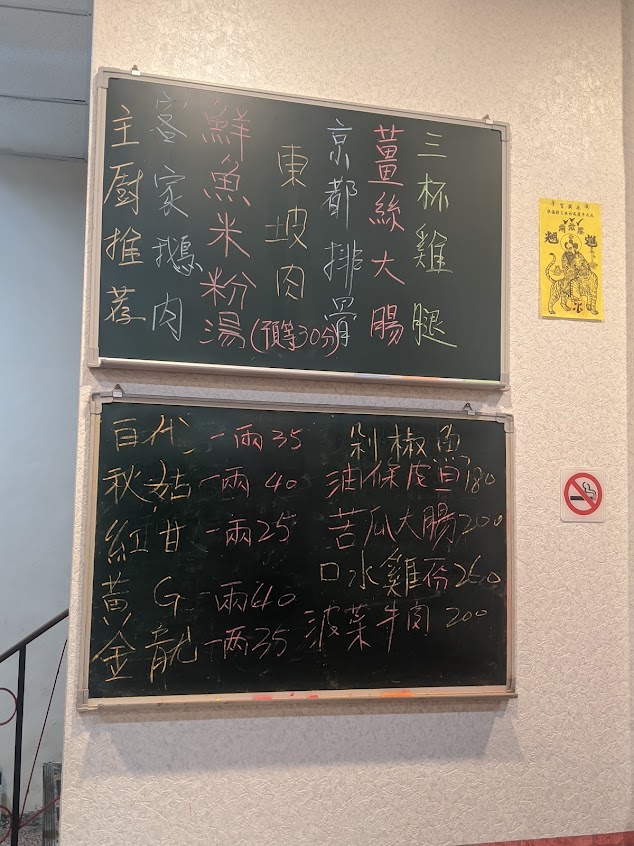 主廚推荐
客家鵝肉
鮮魚米粉湯(預等30分)
東坡肉
京都排骨
薑絲大腸
三杯雞腿
百代 一兩35
秋姑 一兩40
紅甘 一兩25
黃G 一兩40
金龍 一两35
剁椒魚
180
苦瓜大腸200
口水雞份260
波菜牛肉 200